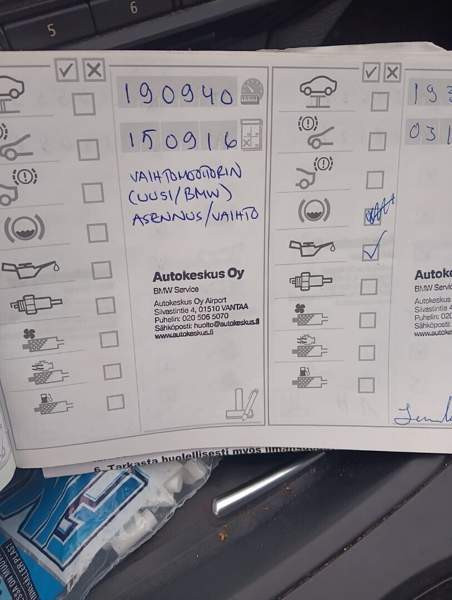 5
6
190940
193
150916
031
VAIHTOMOOTTORIN
(UUSI/BMW)
ASENNUS/VAIHTO
Autokeskus Oy
BMW Service
Autokeskus Oy Airport
Silvastintie 4, 01510 VANTAA
Puhelin: 020 506 5070
Sähköposti: huolto@autokeskus.fi
www.autokeskus.fi
Autok
BMW Servic
Autokeskus
Silvastintie
Puhelin: 020
Sähköposti
www.autok
6. Tarkasta huolellisesti myös